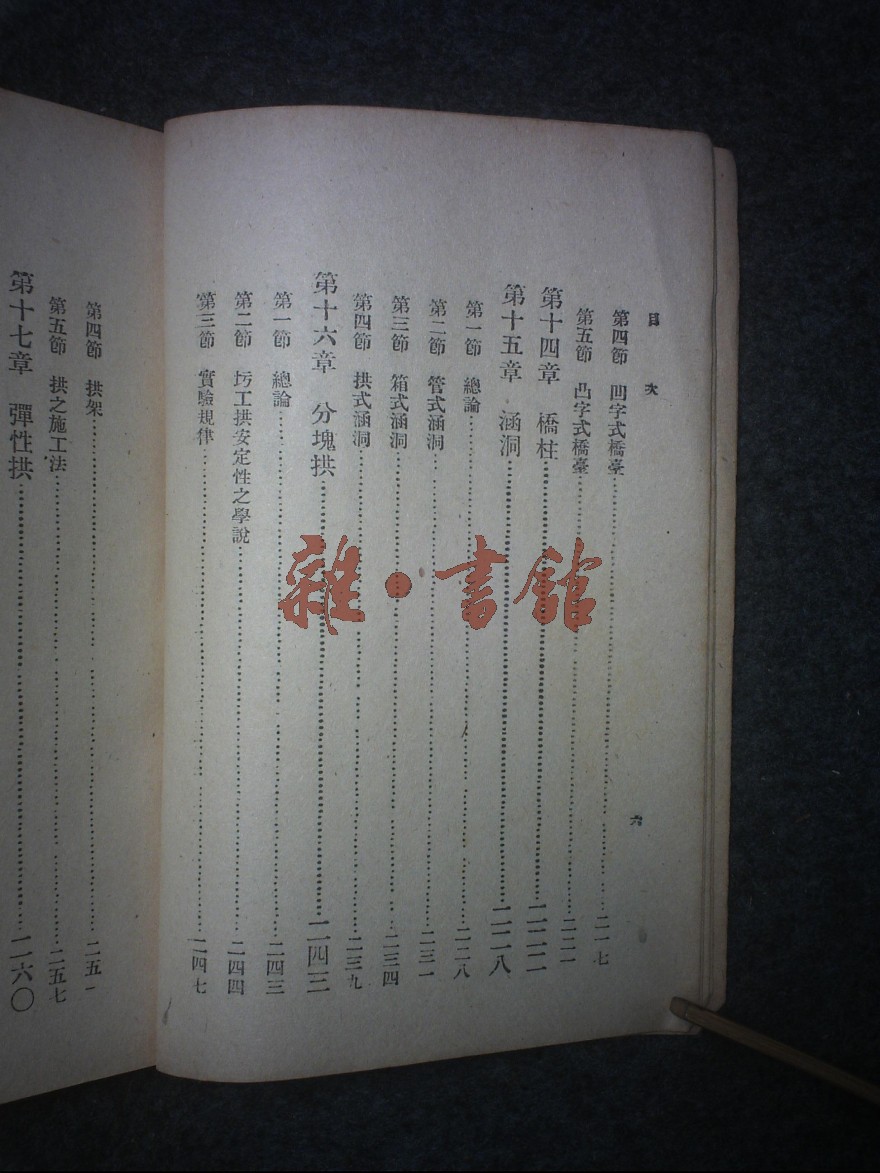 目次
六
第四節 凹字式橋臺 二一七
第五節 凸字式橋臺 二二一
第十四章 橋柱 二二二
第十五章 涵洞 二二八
第一節 總論 二二八
第二節 管式涵洞 二三一
第三節 箱式涵洞 二三四
第四節 拱式涵洞 二三九
第十六章 分塊拱 二四三
第一節 總論 二四三
第二節 圬工拱安定性之學說 二四四
第三節 實驗規律 二四七
第四節 拱架 二五一
第五節 拱之施工法 二五七
第十七章 彈性拱 二六〇
雜·書館